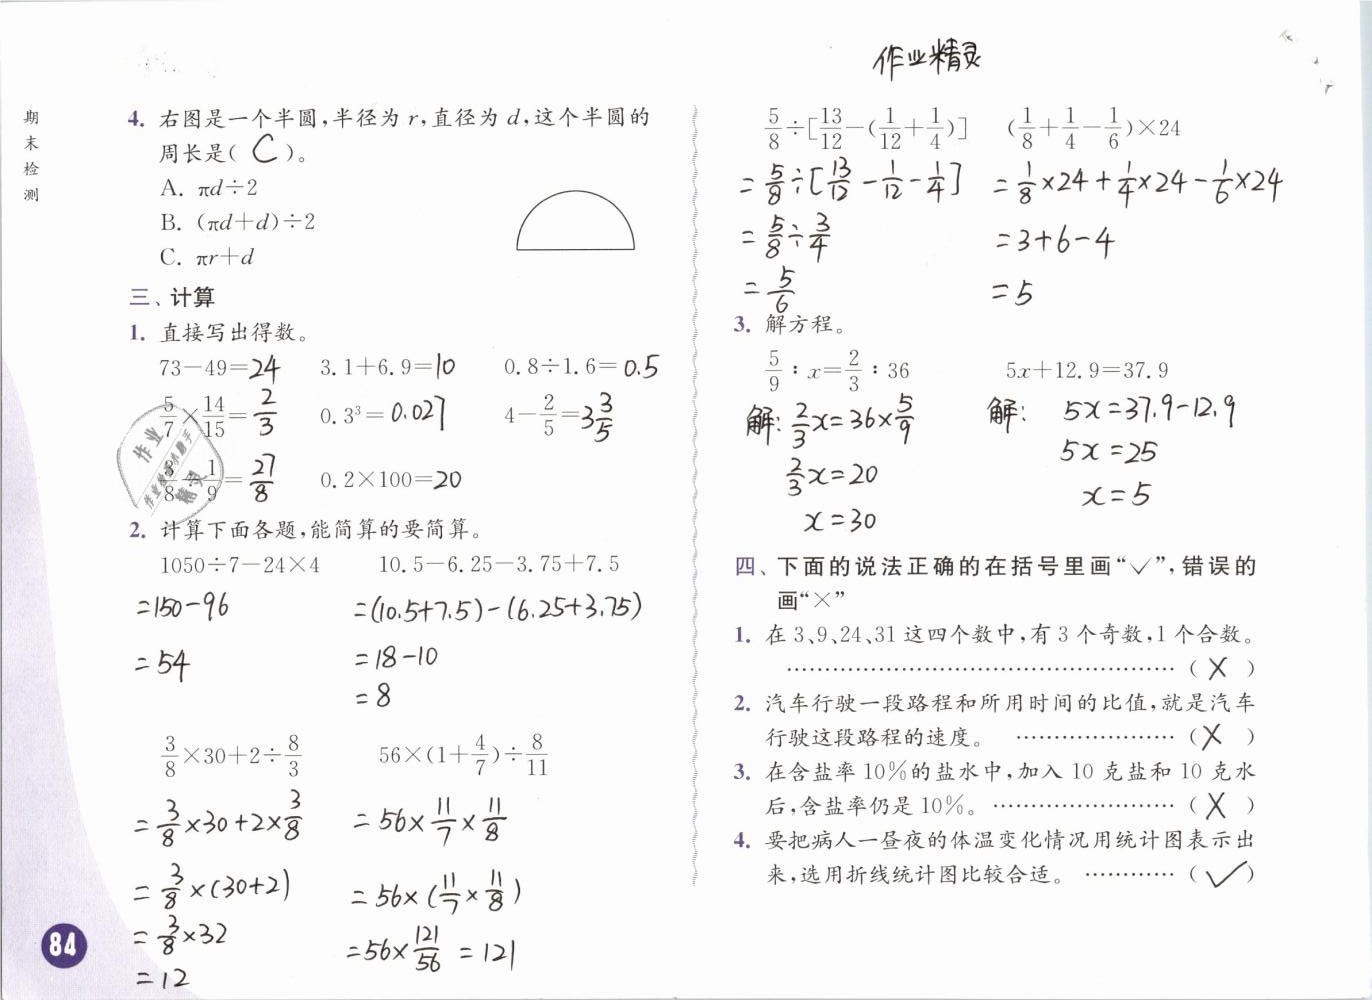 作业精灵
期末检测
4. 右图是一个半圆,半径为 r,直径为 d,这个半圆的
周长是( C )。
A. πd÷2
B. (πd+d)÷2
C. πr+d
三、计算
1. 直接写出得数。
73-49=24 3.1+6.9=10 0.8÷1.6=0.5
5/7×14/15=2/3 0.3³=0.027 4-2/5=3 3/5
3/8÷1/9=27/8 0.2×100=20
作业精灵
2. 计算下面各题,能简算的要简算。
1050÷7-24×4 10.5-6.25-3.75+7.5
=150-96 =(10.5+7.5)-(6.25+3.75)
=54 =18-10
=8
3/8×30+2÷8/3 56×(1+4/7)÷8/11
=3/8×30+2×3/8 =56×11/7×11/8
=3/8×(30+2) =56×(11/7×11/8)
=3/8×32 =56×121/56=121
=12
84
5/8÷[13/12-(1/12+1/4)] (1/8+1/4-1/6)×24
=5/8÷[13/12-1/12-1/4] =1/8×24+1/4×24-1/6×24
=5/8÷3/4 =3+6-4
=5/6 =5
3. 解方程。
5/9:x=2/3:36 5x+12.9=37.9
解:2/3x=36×5/9 解: 5x=37.9-12.9
2/3x=20 5x=25
x=30 x=5
四、下面的说法正确的在括号里画“✓”,错误的
画“×”
1. 在 3、9、24、31 这四个数中,有 3 个奇数,1 个合数。
………………………………………… ( × )
2. 汽车行驶一段路程和所用时间的比值,就是汽车
行驶这段路程的速度。 ………………… ( × )
3. 在含盐率 10%的盐水中,加入 10 克盐和 10 克水
后,含盐率仍是 10%。 …………………… ( × )
4. 要把病人一昼夜的体温变化情况用统计图表示出
来,选用折线统计图比较合适。 ………… ( ✓ )